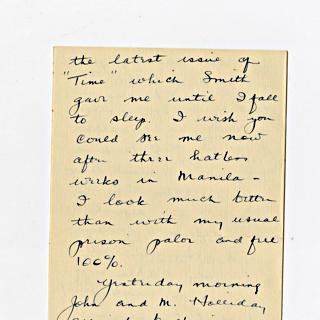 the latest issue of
"Time" which Smith
gave me until I fall
to sleep. I wish you
could see me now
after three hatless
weeks in Manila -
I look much better
than with my usual
prison palor and feel
100%.
Yestreday morning
John and M. Holliday